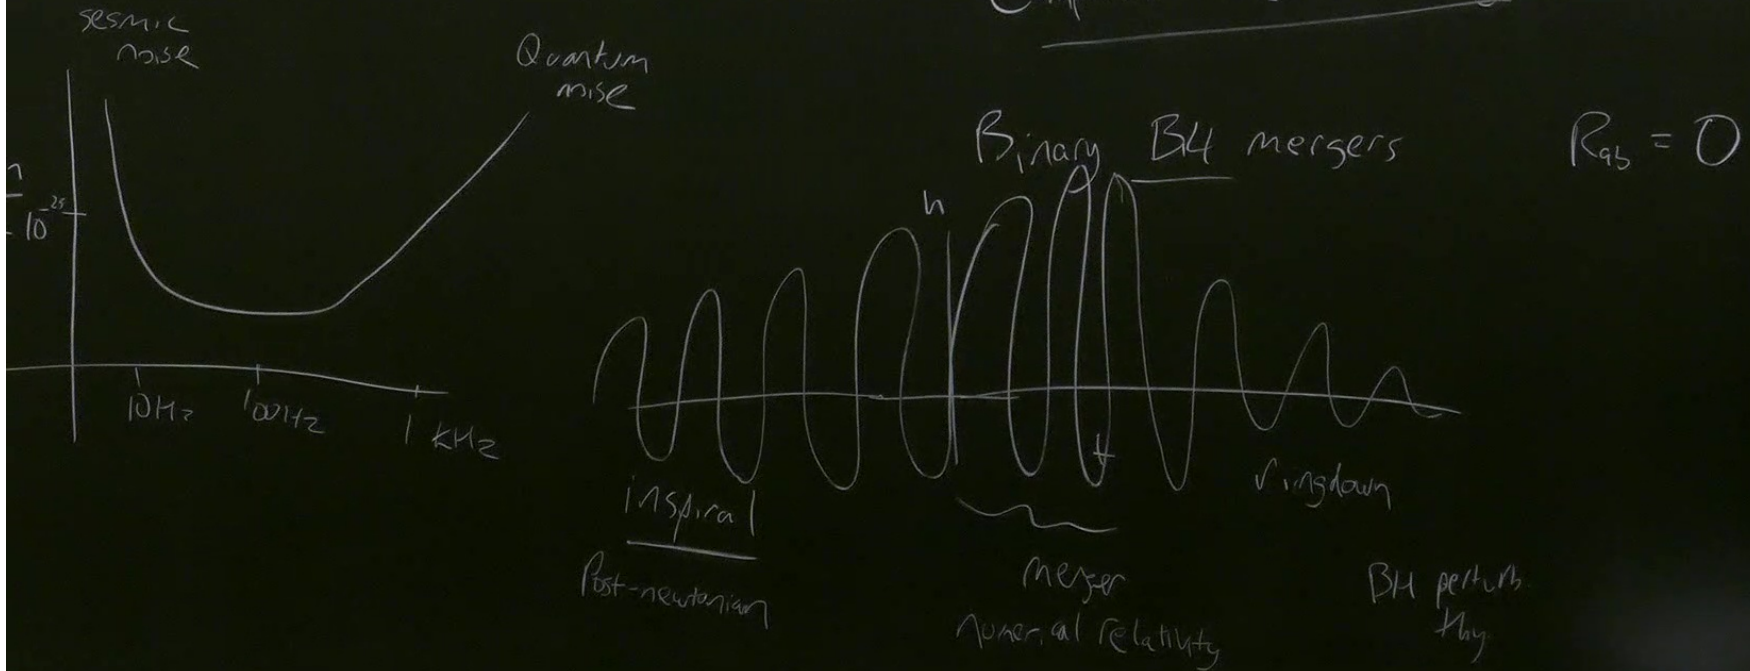 sesmic
noise
Quantum
noise
10^-25
10Hz
100Hz
1 kHz
Binary BH mergers
R_ab = 0
h
t
inspiral
Post-newtonian
merger
numerical relativity
ringdown
BH perturb.
thy